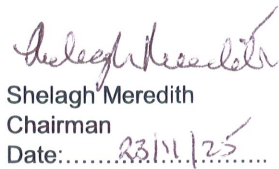 Shelagh Meredith
Shelagh Meredith
Chairman
Date:......23/11/25..........